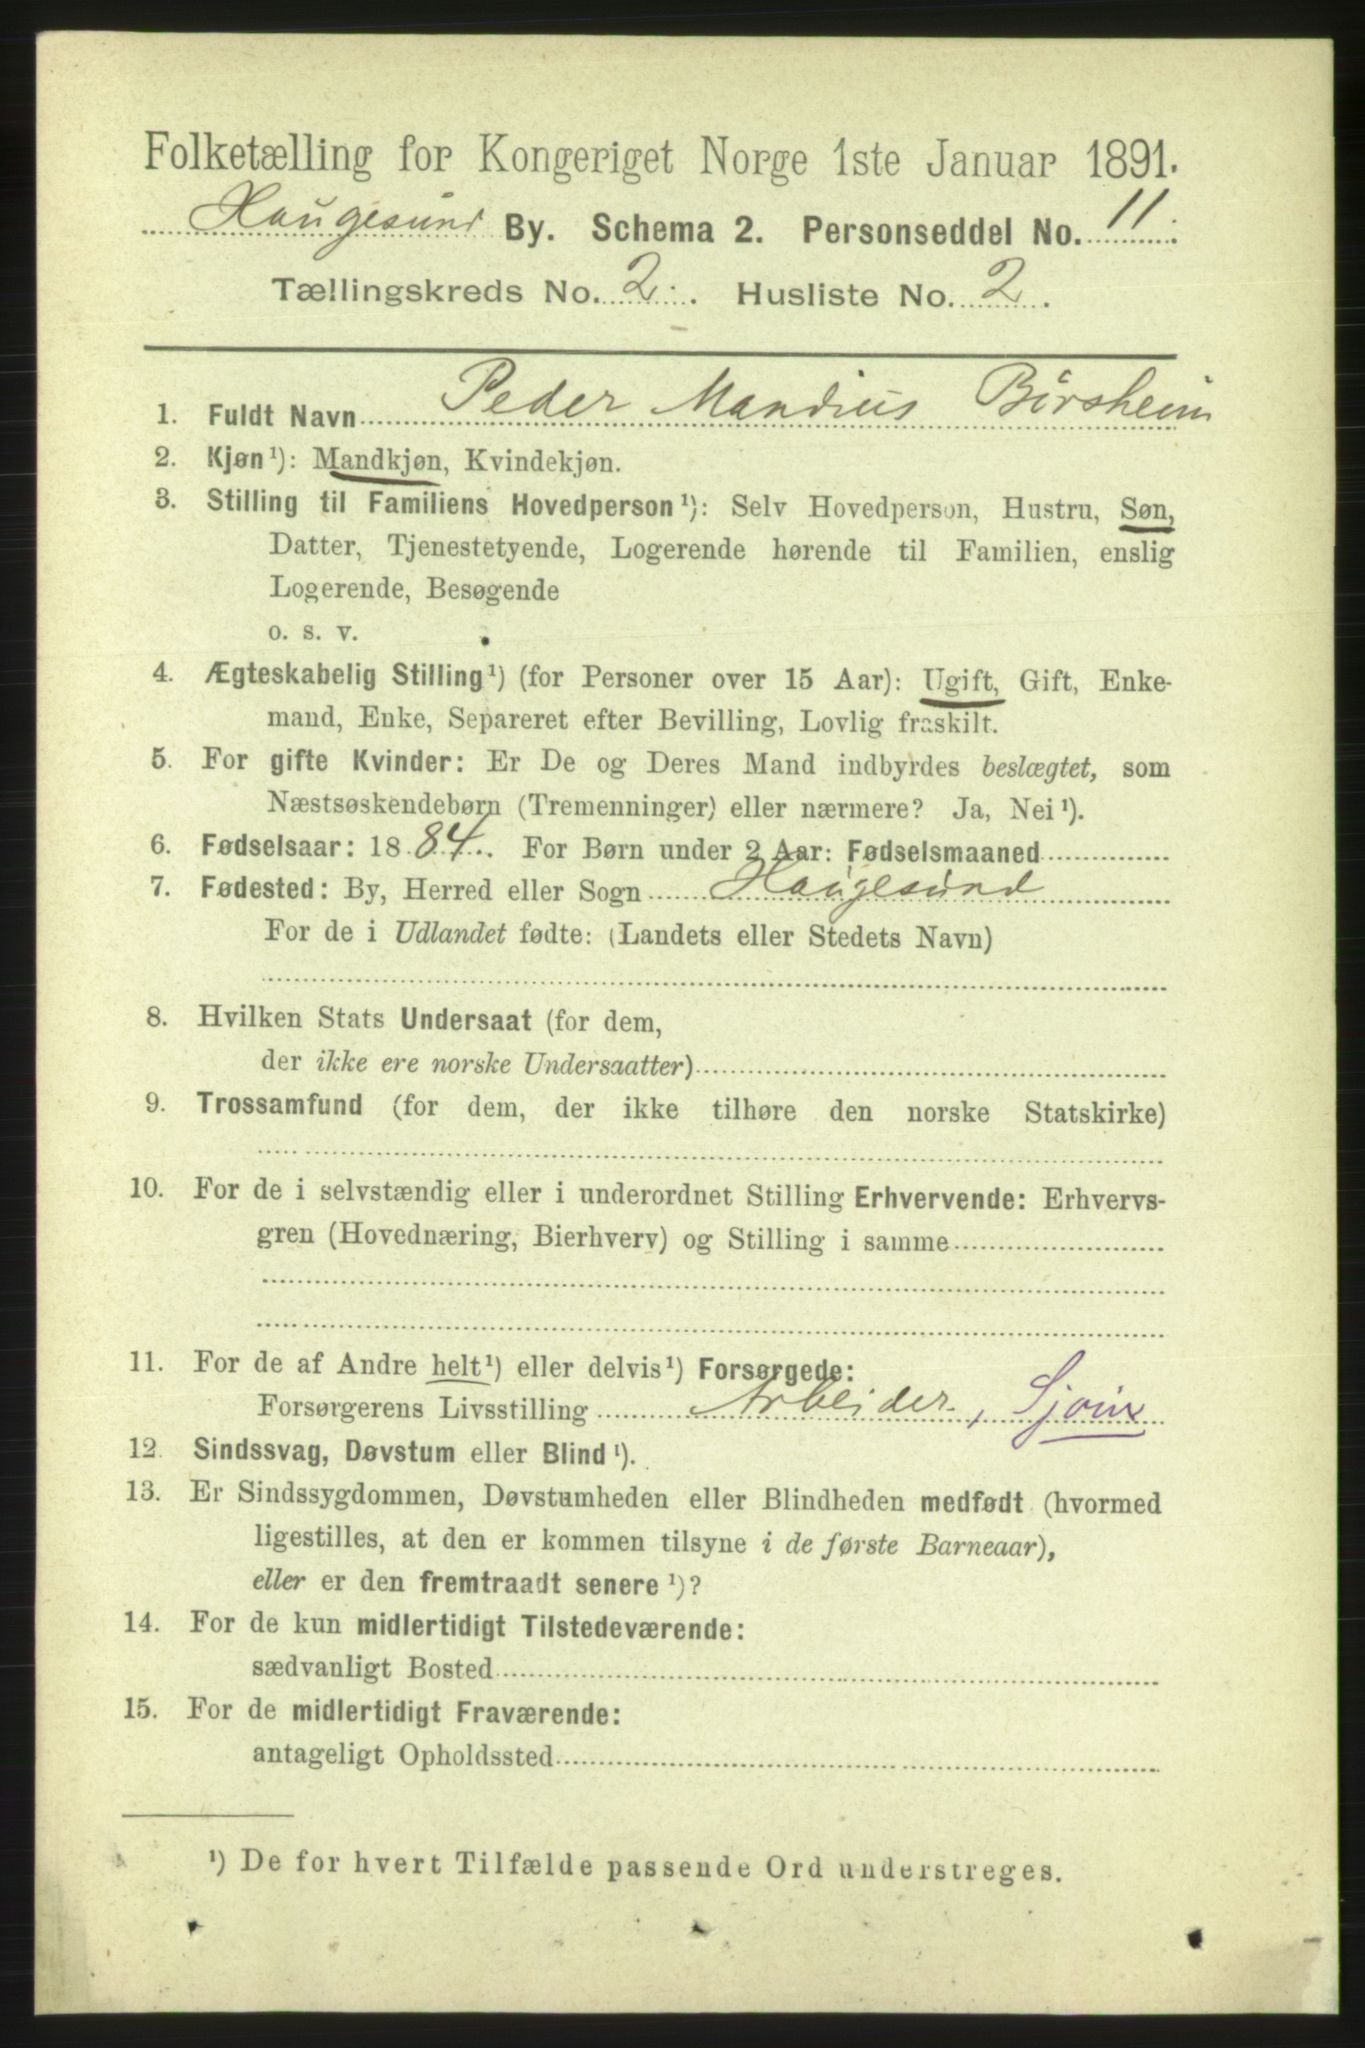 Folketælling for Kongeriget Norge 1ste Januar 1891.
Haugesund By. Schema 2. Personseddel No. 11.
Tællingskreds No. 2. Husliste No. 2.
1. Fuldt Navn Peder Mandius Börsheim
2. Kjøn ¹): Mandkjøn, Kvindekjøn.
3. Stilling til Familiens Hovedperson ¹): Selv Hovedperson, Hustru, Søn,
Datter, Tjenestetyende, Logerende hørende til Familien, enslig
Logerende, Besøgende
o. s. v.
4. Ægteskabelig Stilling ¹) (for Personer over 15 Aar): Ugift, Gift, Enke-
mand, Enke, Separeret efter Bevilling, Lovlig fraskilt.
5. For gifte Kvinder: Er De og Deres Mand indbyrdes beslægtet, som
Næstsøskendebørn (Tremenninger) eller nærmere? Ja, Nei ¹).
6. Fødselsaar: 1884. For Børn under 2 Aar: Fødselsmaaned
7. Fødested: By, Herred eller Sogn Haugesund
For de i Udlandet fødte: (Landets eller Stedets Navn)
8. Hvilken Stats Undersaat (for dem,
der ikke ere norske Undersaatter)
9. Trossamfund (for dem, der ikke tilhøre den norske Statskirke)
10. For de i selvstændig eller i underordnet Stilling Erhvervende: Erhvervs-
gren (Hovednæring, Bierhverv) og Stilling i samme
11. For de af Andre helt ¹) eller delvis ¹) Forsørgede:
Forsørgerens Livsstilling Arbeider,
12. Sindssvag, Døvstum eller Blind ¹).
13. Er Sindssygdommen, Døvstumheden eller Blindheden medfødt (hvormed
ligestilles, at den er kommen tilsyne i de første Barneaar),
eller er den fremtraadt senere ¹)?
14. For de kun midlertidigt Tilstedeværende:
sædvanligt Bosted
15. For de midlertidigt Fraværende:
antageligt Opholdssted
¹) De for hvert Tilfælde passende Ord understreges.